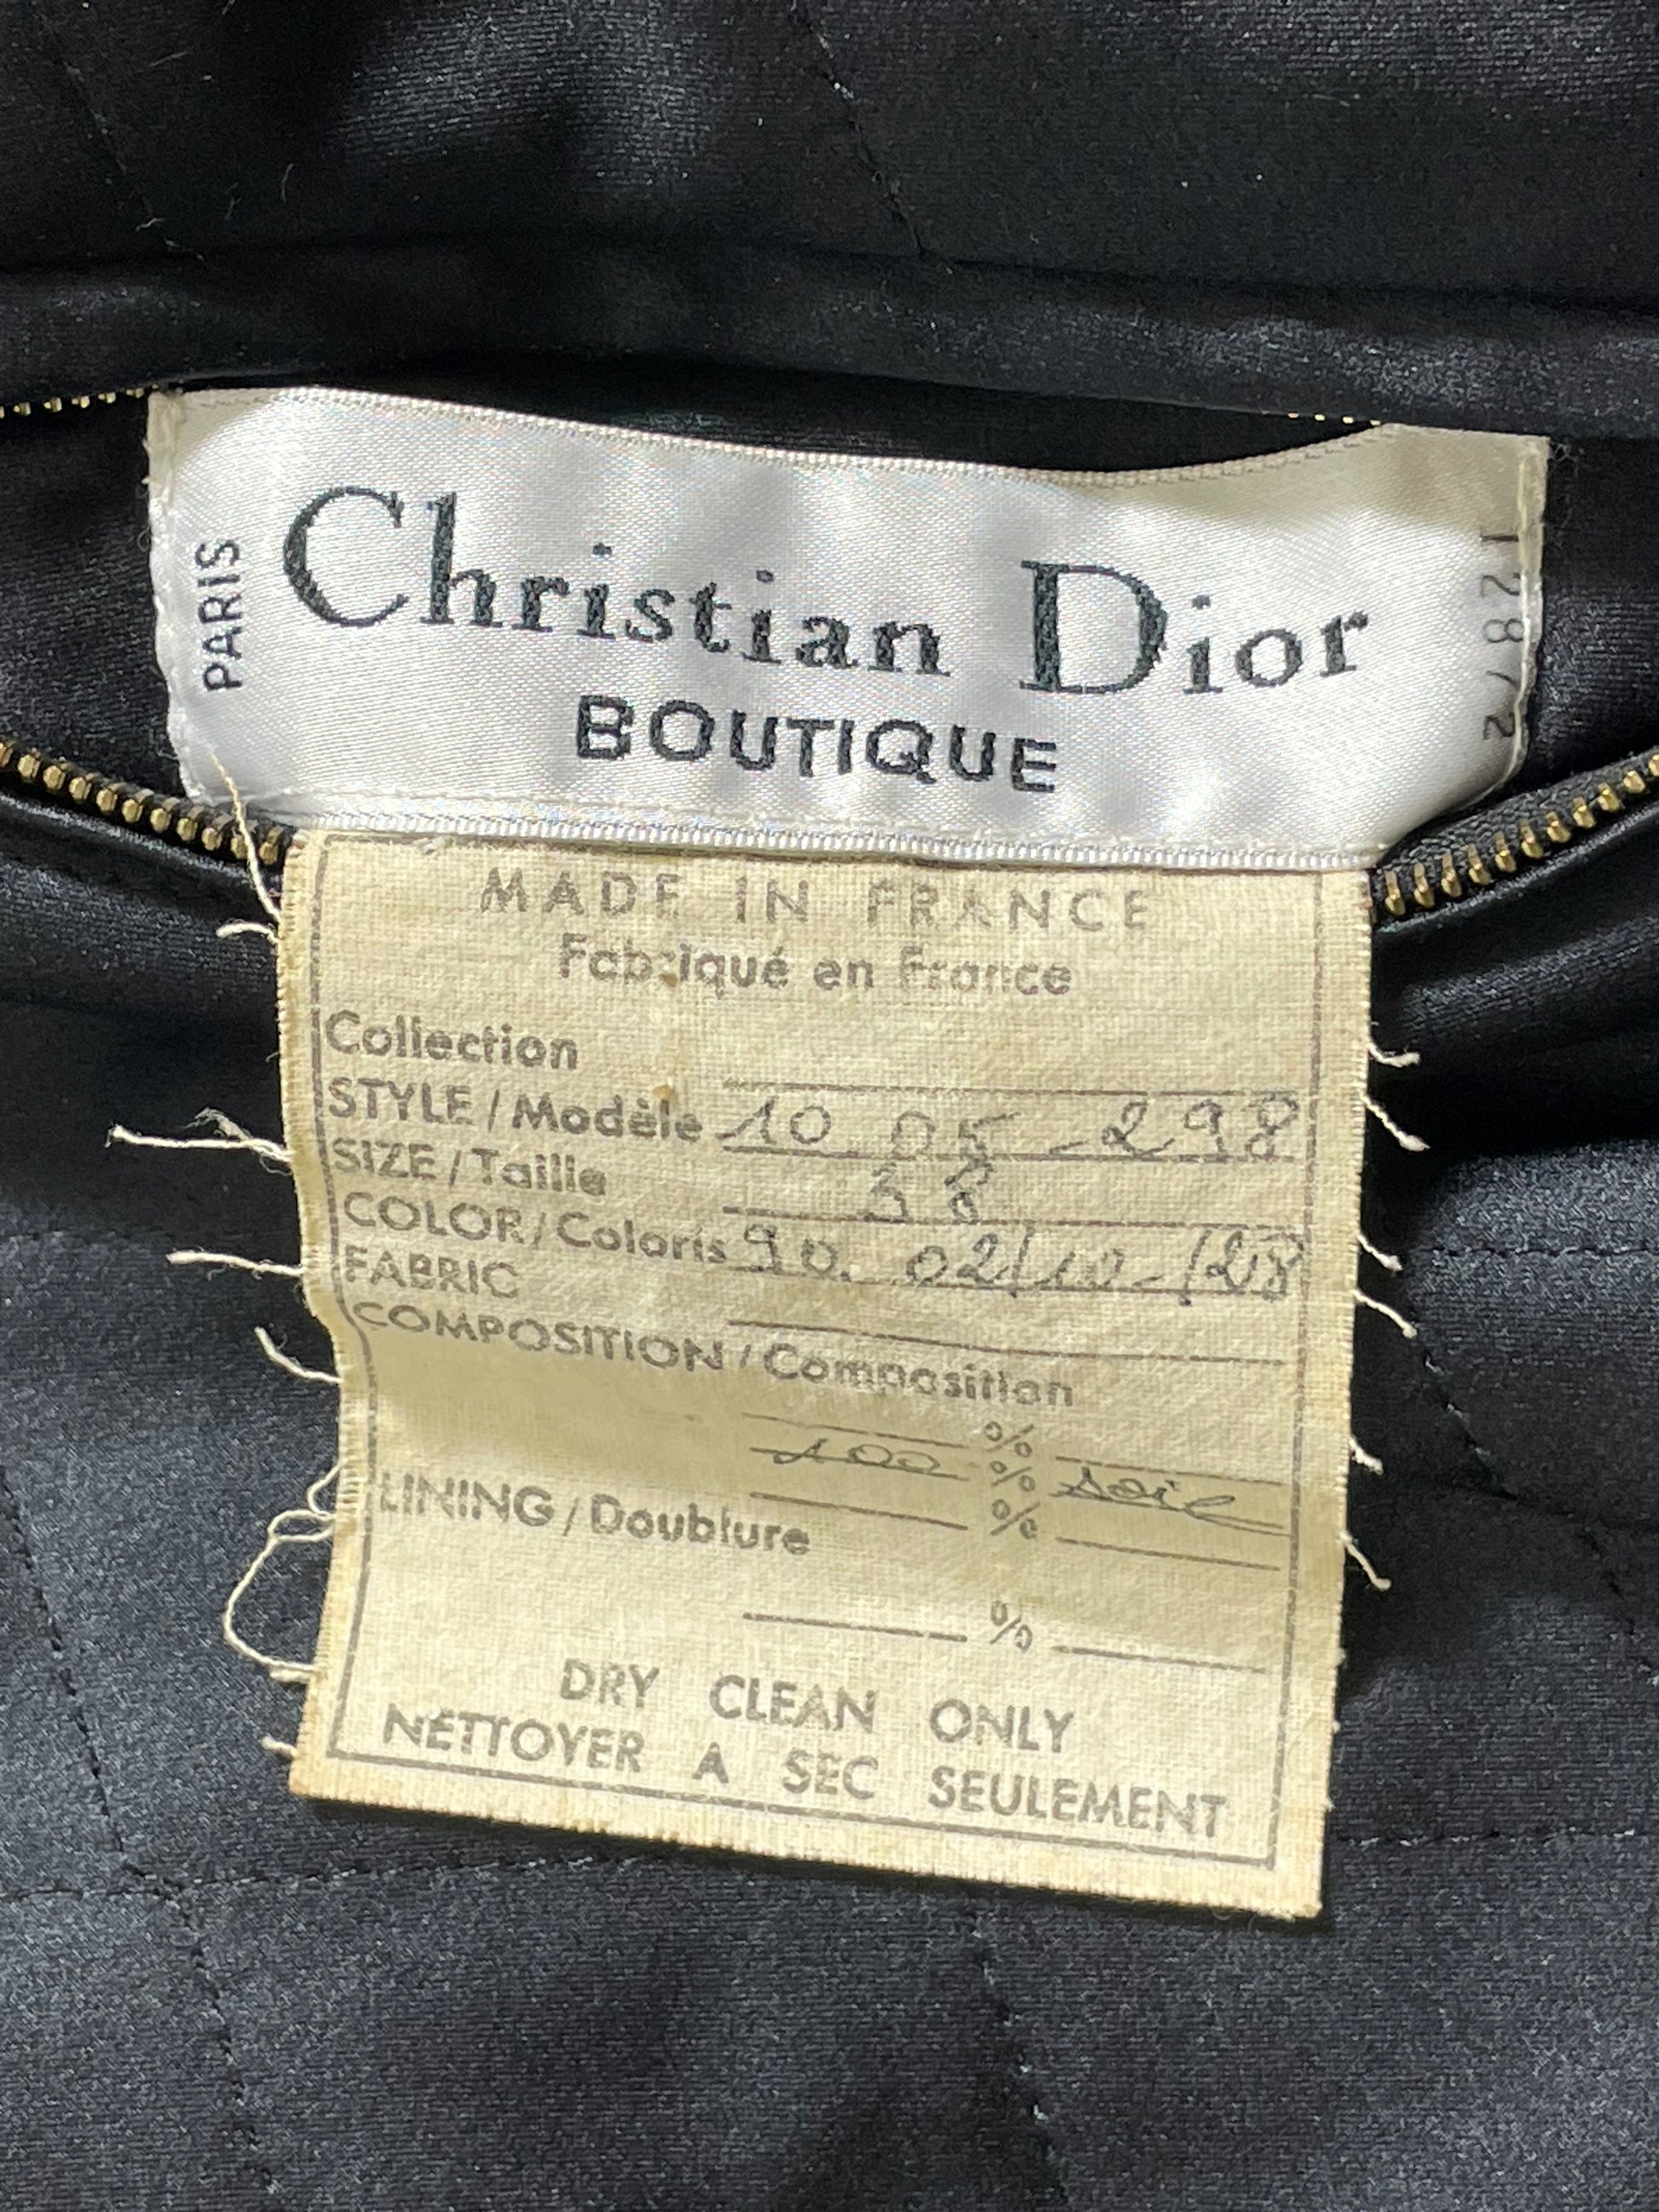 PARIS
Christian Dior
BOUTIQUE
12872
MADE IN FRANCE
Fabriqué en France
Collection
STYLE / Modèle 10. 05 - 298
SIZE / Taille 38
COLOR / Coloris 90. 02/10-/28
FABRIC
COMPOSITION / Composition
%
100 % soie
%
LINING / Doublure
%
DRY CLEAN ONLY
NETTOYER A SEC SEULEMENT